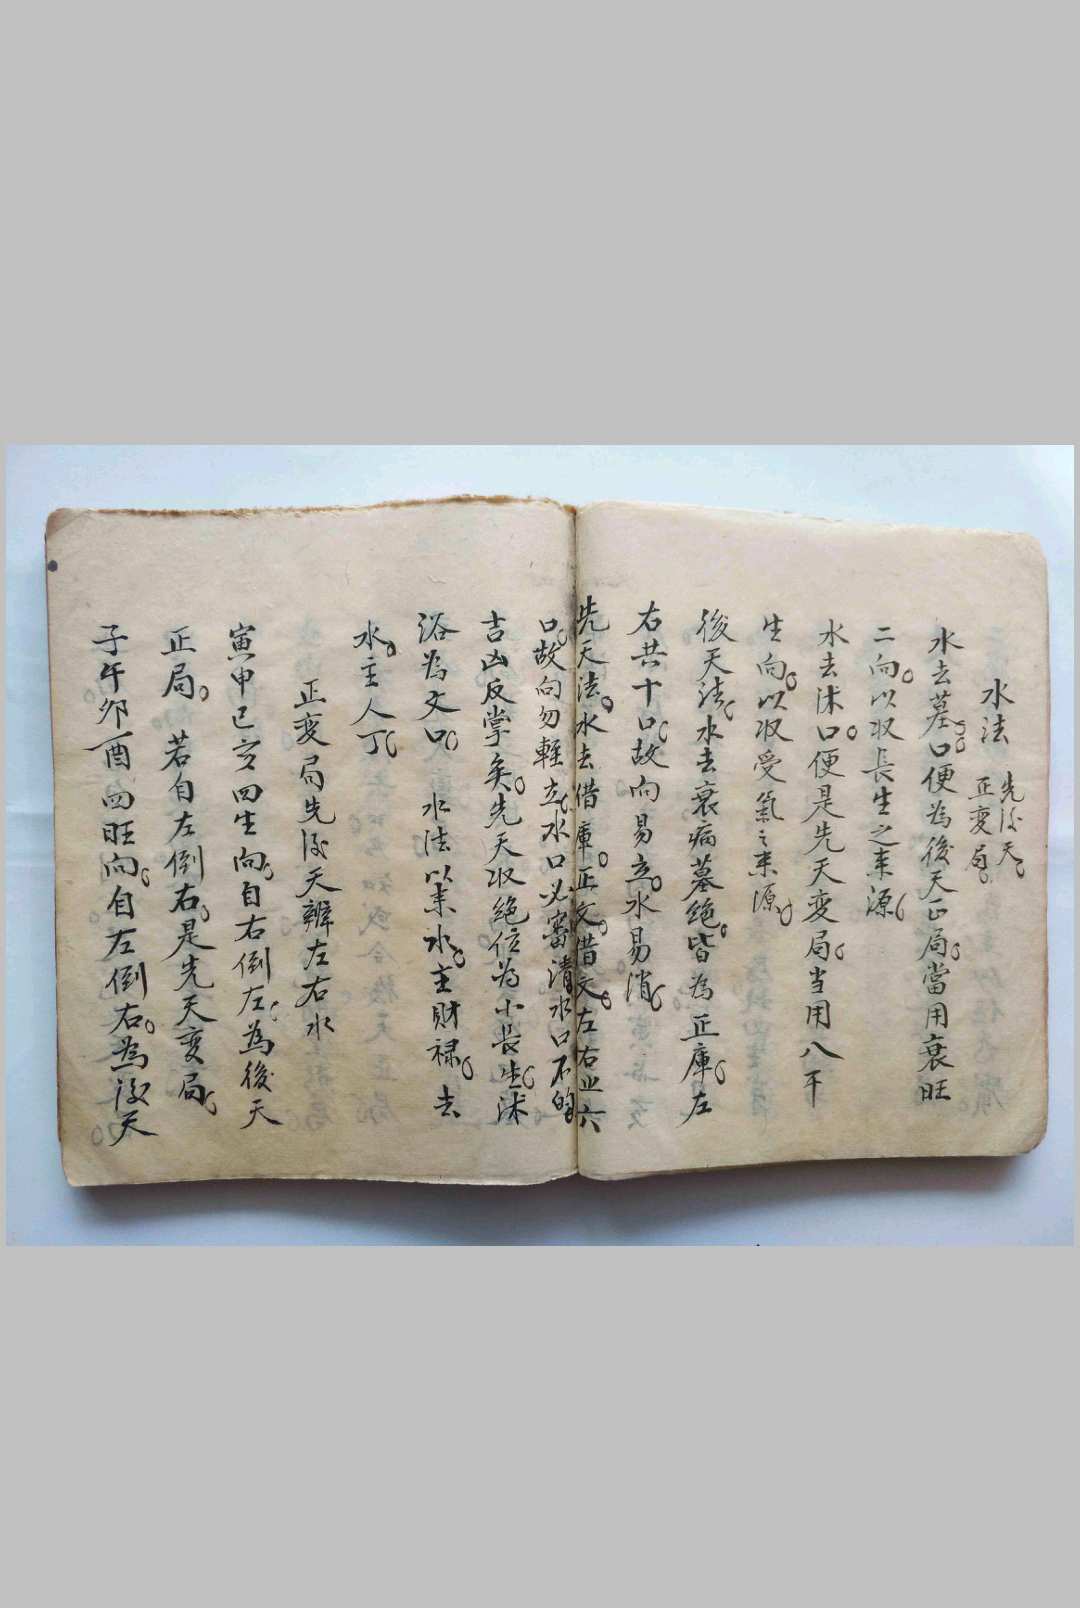 水法 先后天 正変局
水去墓口便為後天正局當用衰旺
二向以収長生之来源
水去沐口便是先天変局当用八干
生向以収受氣之来源
後天法水去衰病墓絶皆為正庫左
右共十口故向易立水易消
先天法水去借庫正文借文左右止六
口故向勿輕立水口必審清水口不的
吉凶反掌矣先天収绝位為小長生沐
浴為文口 水法以来水主財禄去
水主人丁
正変局先后天辨左右水
寅申巳亥四生向自右倒左為後天
正局 若自左倒右是先天変局
子午卯酉四旺向自左倒右為后天